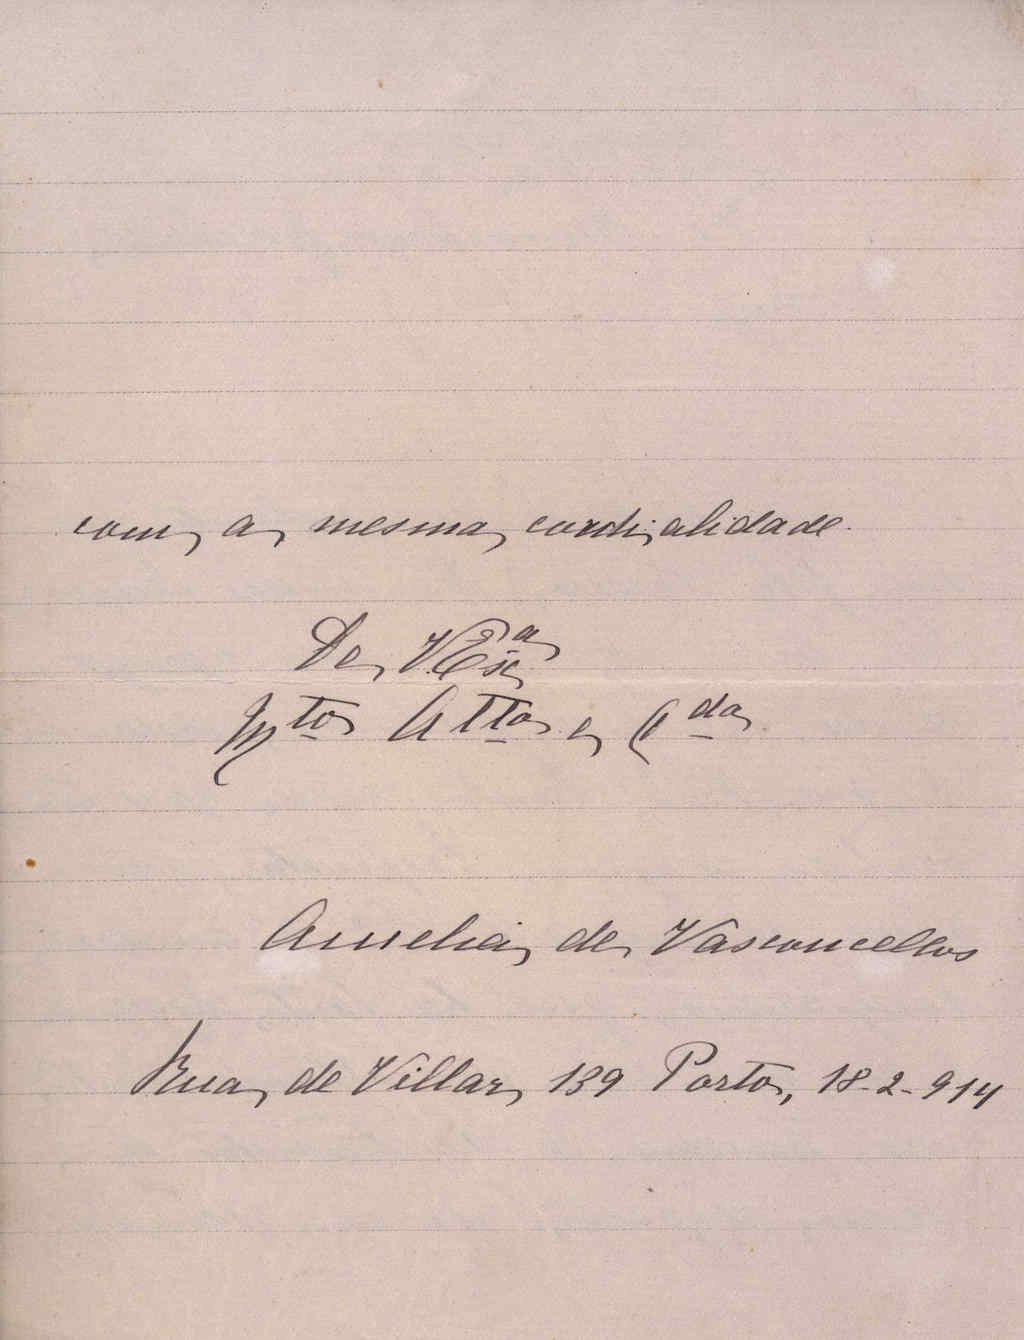 com a mesma cordialidade.
De V. Exª
Mto Atta e Oda
Amelia de Vasconcellos
Rua de Villar, 139 Porto, 18-2-914